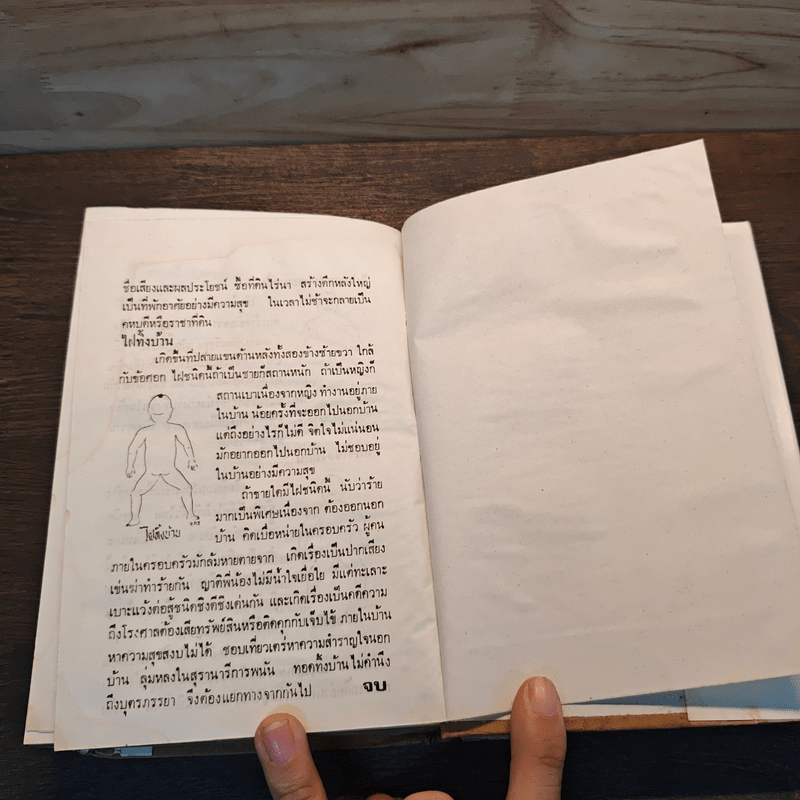 ชื่อเสียงและผลประโยชน์ ซื้อที่ดินไร่นา สร้างตึกหลังใหญ่
เป็นที่พักอาศัยอย่างมีความสุข ในเวลาไม่ช้าจะกลายเป็น
คหบดีหรือราชาที่ดิน
ไฝทิ้งบ้าน
เกิดขึ้นที่ปลายแขนด้านหลังทั้งสองข้างซ้ายขวา ใกล้
กับข้อศอก ไฝชนิดนี้ถ้าเป็นชายก็สถานหนัก ถ้าเป็นหญิงก็
สถานเบาเนื่องจากหญิง ทำงานอยู่ภาย
ในบ้าน น้อยครั้งที่จะออกไปนอกบ้าน
แต่ถึงอย่างไรก็ไม่ดี จิตใจไม่แน่นอน
มักอยากออกไปนอกบ้าน ไม่ชอบอยู่
ในบ้านอย่างมีความสุข
ถ้าชายใดมีไฝชนิดนี้ นับว่าร้าย
มากเป็นพิเศษเนื่องจาก ต้องออกนอก
บ้าน คิดเบื่อหน่ายในครอบครัว ผู้คน
ไฝทิ้งบ้าน
ภายในครอบครัวมักล้มหายตายจาก เกิดเรื่องเป็นปากเสียง
เข่นฆ่าทำร้ายกัน ญาติพี่น้องไม่มีน้ำใจเยื่อใย มีแต่ทะเลาะ
เบาะแว้งต่อสู้ชนิดชิงดีชิงเด่นกัน และเกิดเรื่องเป็นคดีความ
ถึงโรงศาลต้องเสียทรัพย์สินหรือติดคุกกับเจ็บไข้ ภายในบ้าน
หาความสุขสงบไม่ได้ ชอบเที่ยวเตร่หาความสำราญใจนอก
บ้าน ลุ่มหลงในสุรานารีการพนัน ทอดทิ้งบ้านไม่คำนึง
ถึงบุตรภรรยา จึงต้องแยกทางจากกันไป จบ